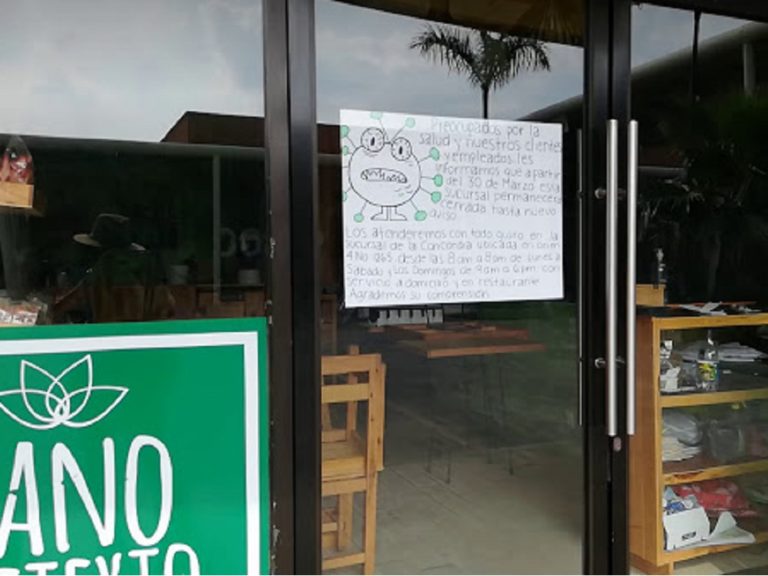 Preocupados por la
salud y nuestros clientes
y empleados les
informamos que a partir
del 30 de Marzo esta
sucursal permanecera
cerrada hasta nuevo
aviso.
Los atenderemos con todo gusto en la
sucursal de la Concordia ubicada en
4 No 1265 desde las 8 am a 8 pm de Lunes a
Sabado y Los Domingos de 9 am a 6 pm con
servicio a domicilio y en restaurante
Agrademos su comprensión
ANO
TEXTO